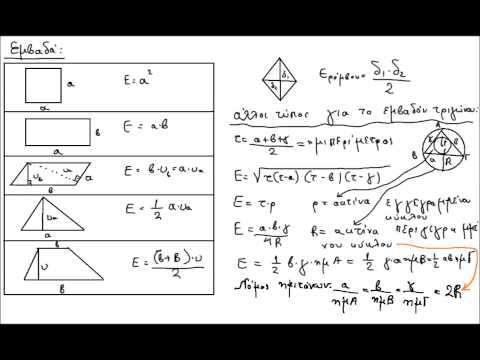 Εμβαδά:
a
a
E = a²
a
β
E = a·β
β
υβ
υα
α
E = β·υβ = α·υα
υα
α
E = 1/2 α·υα
β
υ
Β
E = (β+Β)·υ/2
δ₁
δ₂
Eρόμβου = δ₁·δ₂/2
άλλοι τύποι για το εμβαδόν τριγώνου:
τ = α+β+γ/2 = ημιπερίμετρος
E = √τ(τ-α)(τ-β)(τ-γ)
Α
Β
Γ
α
R
E = τ·ρ ρ = ακτίνα εγγεγραμμένου κύκλου
E = α·β·γ/4R R = ακτίνα περιγεγραμμένου κύκλου
E = 1/2 β·γ·ημΑ = 1/2 γ·α·ημΒ = 1/2 αβημΓ
Νόμος ημιτόνων: α/ημΑ = β/ημΒ = γ/ημΓ = 2R